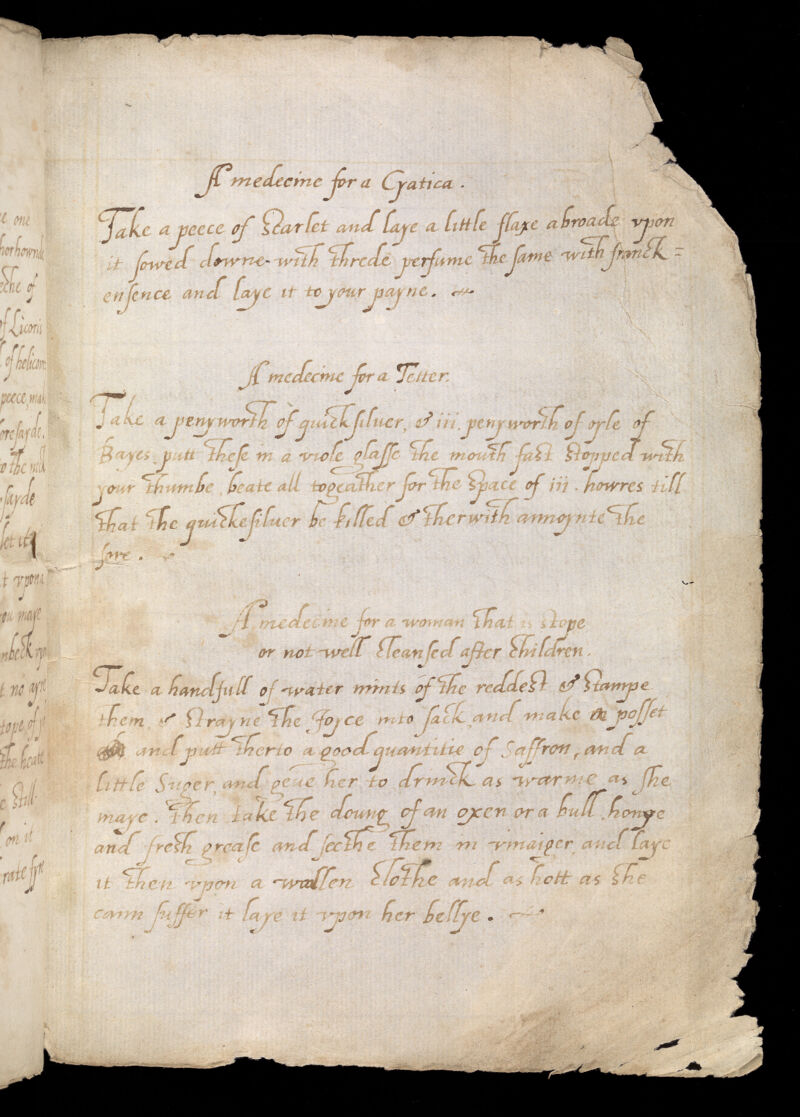 A medecine for a Cyatica.
Take a peece of Scarlet and laye a little flaxe abroade vpon
it sowed downe with threde perfume the same with franck=
ensence and laye it to your payne.
A medecine for a Tetter.
Take a penyworth of quicksilver, & iii. penyworth of oyle of
Bayes, putt these in a viole glasse the mouth fast stopped with
your thumbe, beate all togeather for the space of iii. howres till
that the quickesiluer be killed & therwith annoynte the
sore.
A medecine for a woman that is stope
or not well cleansed after children.
Take a handfull of water mints of the reddest & stampe
them, & strayne the Joyce into sack, and make a posset
and putt therto a good quantitie of Saffron, and a
little Suger, and geve her to drinck as warme as she
maye. Then take the doung of an oxen or a bull, honye
and fresh grease and seethe them in vinaiger, and laye
it then vpon a wollen clothe and as hott as she
cann suffer it laye it vpon her bellye.
e one
horhownde
eche of
of Licoris
peece, mak
oresayde.
sayde
let it
t vpon a
ou maye
t no ayre
the heate
e still
on it